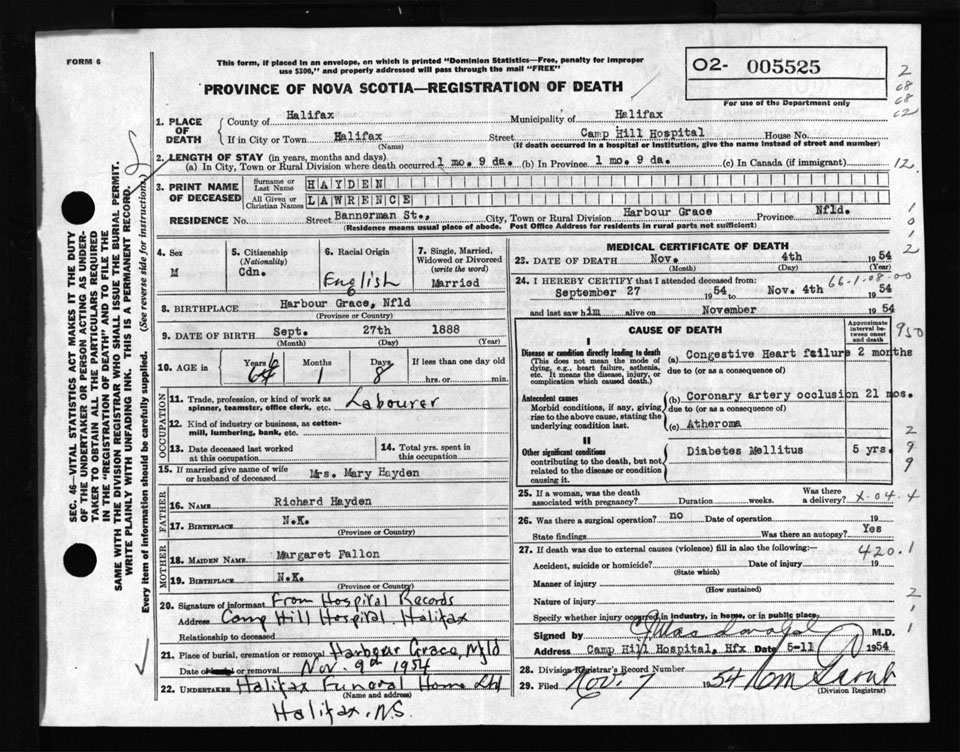 FORM 6
This form, if placed in an envelope, on which is printed "Dominion Statistics—Free, penalty for improper
use $300," and properly addressed will pass through the mail "FREE"
PROVINCE OF NOVA SCOTIA—REGISTRATION OF DEATH
O2- 005525
For use of the Department only
2
08
08
02
12
1
0
1
2
1. PLACE OF DEATH
County of Halifax Municipality of Halifax
If in City or Town Halifax Street Camp Hill Hospital House No.
(Name) (If death occurred in a hospital or institution, give the name instead of street and number)
2. LENGTH OF STAY (in years, months and days)
(a) In City, Town or Rural Division where death occurred 1 mo. 9 da. (b) In Province 1 mo. 9 da. (c) In Canada (if immigrant)
3. PRINT NAME OF DECEASED
Surname or Last Name HAYDEN
All Given or Christian Names LAWRENCE
RESIDENCE No. Street Bannerman St., City, Town or Rural Division Harbour Grace Province Nfld.
(Residence means usual place of abode. Post Office Address for residents in rural parts not sufficient)
4. Sex
M
5. Citizenship
(Nationality)
Cdn.
6. Racial Origin
English
7. Single, Married, Widowed or Divorced
(write the word)
Married
8. BIRTHPLACE Harbour Grace, Nfld
(Province or Country)
9. DATE OF BIRTH Sept. 27th 1888
(Month) (Day) (Year)
10. AGE in
Years Months Days If less than one day old
1 8 hrs. or min.
OCCUPATION
11. Trade, profession, or kind of work as
spinner, teamster, office clerk, etc. Labourer
12. Kind of industry or business, as cotton-
mill, lumbering, bank, etc.
13. Date deceased last worked
at this occupation
14. Total yrs. spent in
this occupation
15. If married give name of wife
or husband of deceased Mrs. Mary Hayden
FATHER
16. NAME Richard Hayden
17. BIRTHPLACE N.K.
(Province or Country)
MOTHER
18. MAIDEN NAME Margaret Fallon
19. BIRTHPLACE N.K.
(Province or Country)
20. Signature of informant From Hospital Records
Address Camp Hill Hospital, Halifax
Relationship to deceased
21. Place of burial, cremation or removal Harbour Grace, Nfld
Date of burial or removal Nov. 9th 1954
22. UNDERTAKER Halifax Funeral Home Ltd
(Name and address)
Halifax, N.S.
MEDICAL CERTIFICATE OF DEATH
23. DATE OF DEATH Nov. 4th 1954
(Month) (Day) (Year)
24. I HEREBY CERTIFY that I attended deceased from: 66-1-08-00
September 27 1954 to Nov. 4th 1954
and last saw him alive on November 1954
CAUSE OF DEATH
Approximate interval between onset and death
950
I
Disease or condition directly leading to death
(This does not mean the mode of
dying, e.g., heart failure, asthenia,
etc. It means the disease, injury, or
complication which caused death.)
(a) Congestive Heart failure 2 months
due to (or as a consequence of)
Antecedent causes
Morbid conditions, if any, giving
rise to the above cause, stating the
underlying condition last.
(b) Coronary artery occlusion 21 mos.
due to (or as a consequence of)
(c) Atheroma
II
Other significant conditions
contributing to the death, but not
related to the disease or condition
causing it.
Diabetes Mellitus 5 yrs.
2
9
9
25. If a woman, was the death
associated with pregnancy? Duration weeks. Was there
a delivery? X-04-4
26. Was there a surgical operation? no Date of operation 19
State findings Was there an autopsy? Yes
27. If death was due to external causes (violence) fill in also the following:— 420.1
Accident, suicide or homicide? Date of injury 19
(State which)
Manner of injury
(How sustained)
Nature of injury
Specify whether injury occurred in industry, in home, or in public place.
2
1
1
Signed by M.D.
Address Camp Hill Hospital, Hfx Date 5-11 1954
28. Division Registrar's Record Number
29. Filed Nov. 7 1954
(Division Registrar)
SEC. 46—VITAL STATISTICS ACT MAKES IT THE DUTY
OF THE UNDERTAKER OR PERSON ACTING AS UNDER-
TAKER TO OBTAIN ALL THE PARTICULARS REQUIRED
IN THE "REGISTRATION OF DEATH" AND TO FILE THE
SAME WITH THE DIVISION REGISTRAR WHO SHALL ISSUE THE BURIAL PERMIT.
WRITE PLAINLY WITH UNFADING INK. THIS IS A PERMANENT RECORD.
Every item of information should be carefully supplied. (See reverse side for instructions)